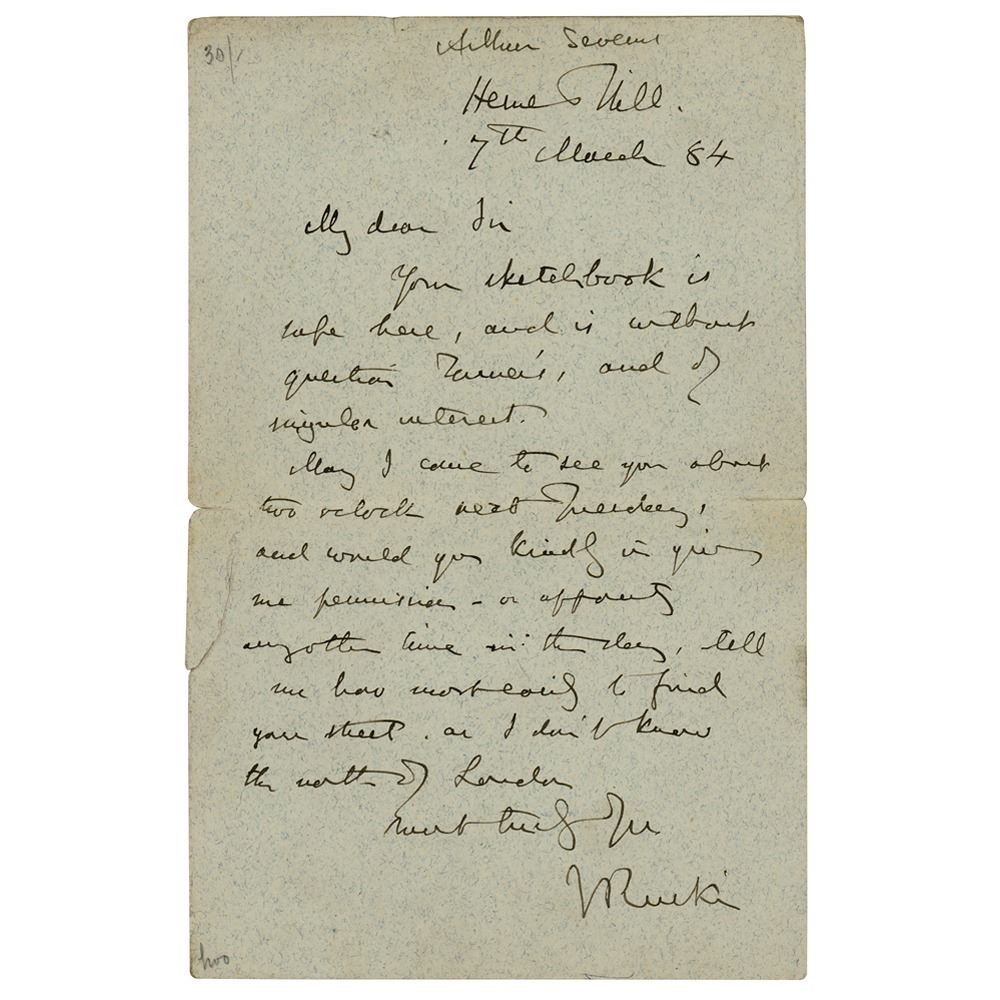 30/-
Arthur Severn
Herne Hill.
7th March 84
My dear Sir
Your sketchbook is
safe here, and is without
question Turner's, and of
singular interest.
May I come to see you about
two oclock next Tuesday,
and would you kindly in giving
me permission - or appointing
any other time in the day, tell
me how most easily to find
your street. as I don't know
the north of London
most truly Yrs
J Ruskin